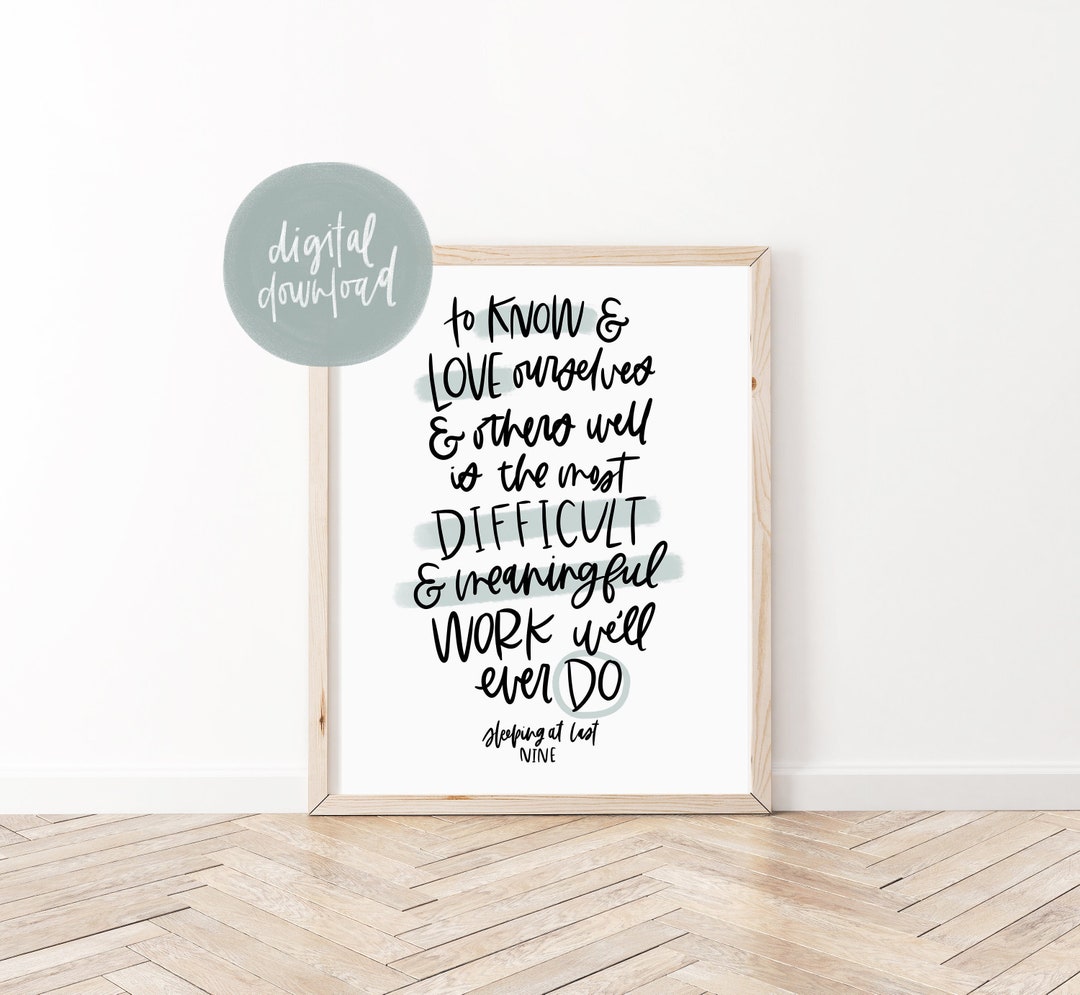 digital
download
to KNOW &
LOVE ourselves
& others well
is the most
DIFFICULT
& meaningful
WORK we'll
ever DO
sleeping at last
NINE